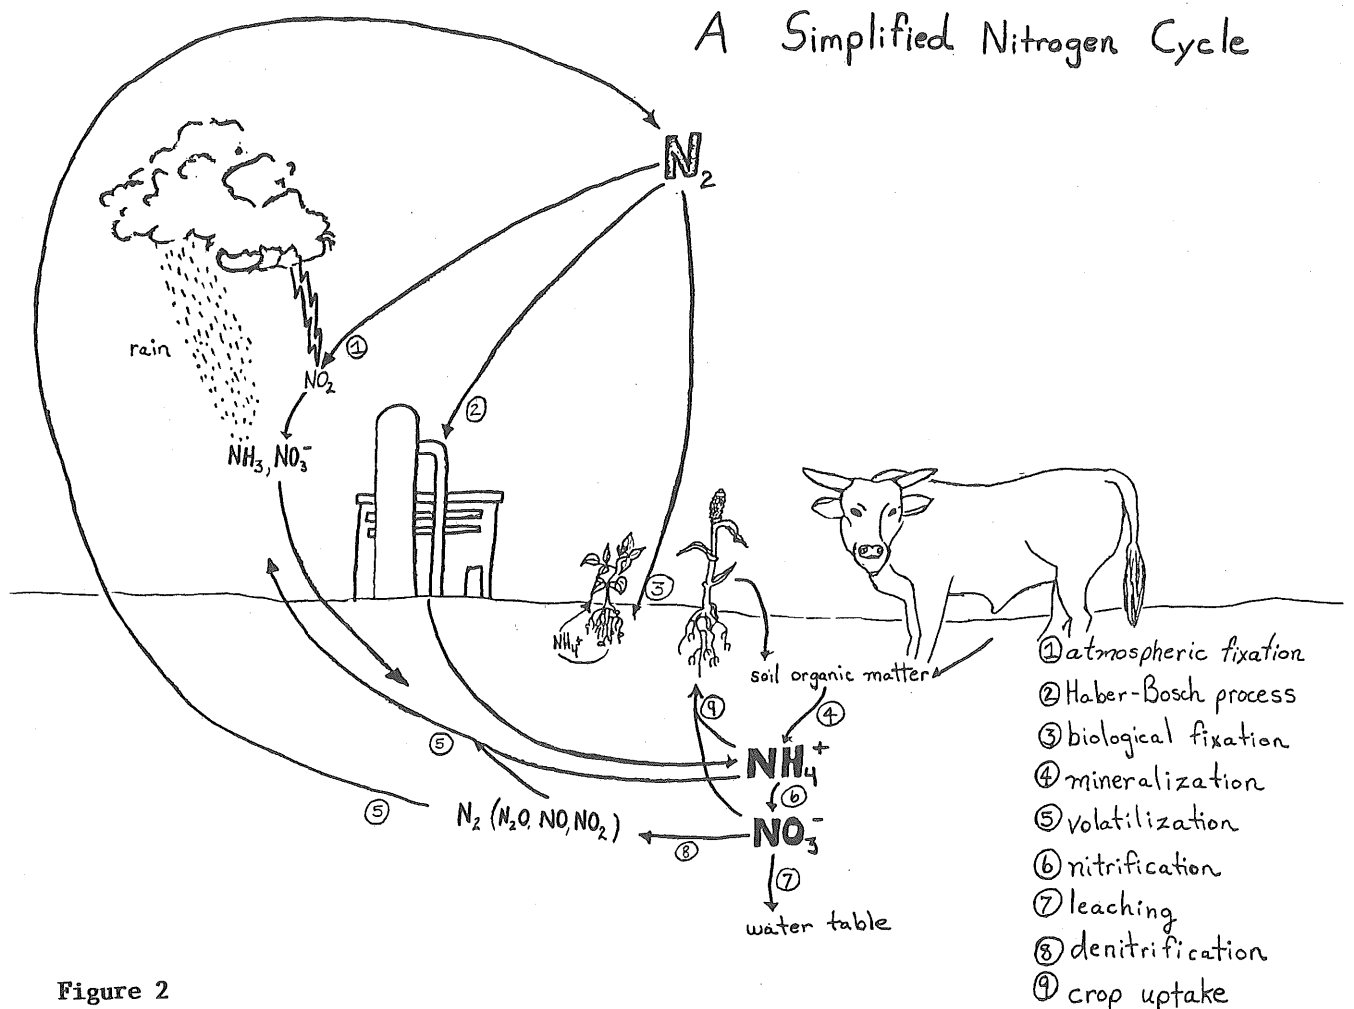 A Simplified Nitrogen Cycle
N₂
rain
①
NO₂
②
NH₃, NO₃⁻
③
NH₄⁺
soil organic matter
⑨
④
NH₄⁺
⑤
⑥
⑤
N₂ (N₂O, NO, NO₂)
NO₃⁻
⑧
⑦
water table
① atmospheric fixation
② Haber-Bosch process
③ biological fixation
④ mineralization
⑤ volatilization
⑥ nitrification
⑦ leaching
⑧ denitrification
⑨ crop uptake
Figure 2